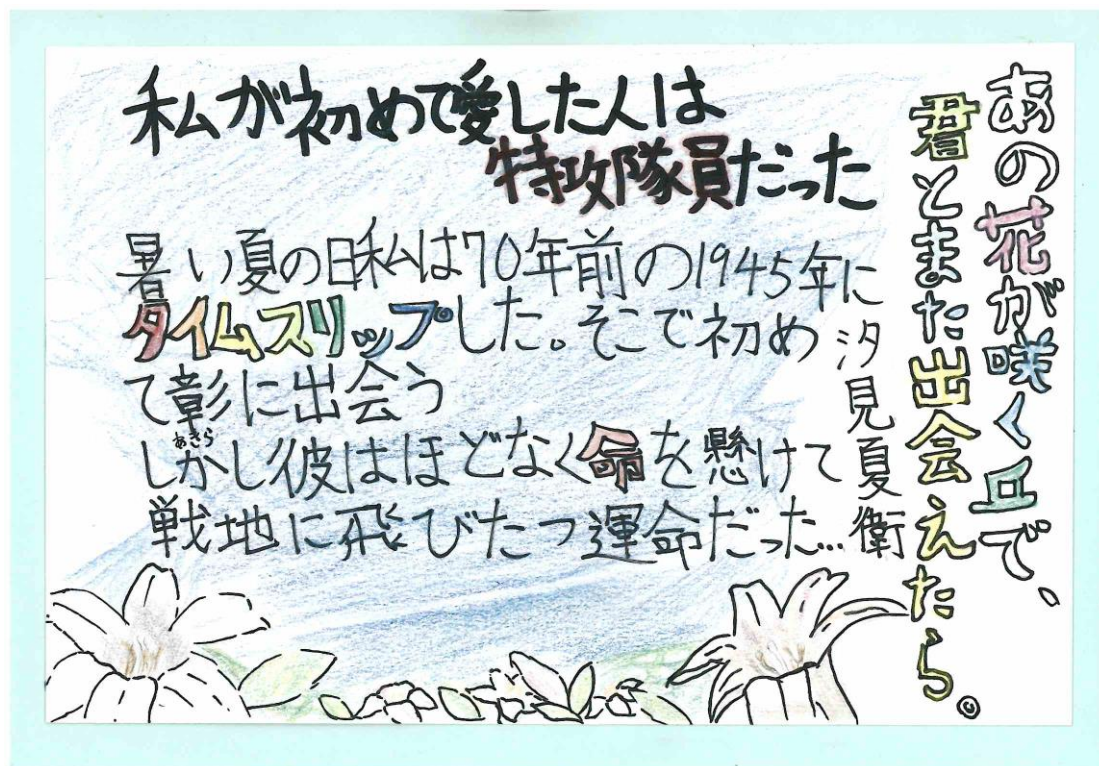 あの花が咲く丘で、
君とまた出会えたら。
©
汐見夏衛
私が初めて愛した人は
特攻隊員だった
暑い夏の日私は70年前の1945年に
タイムスリップした。そこで初め
て彰に出会う
あきら
しかし彼はほどなく命を懸けて
戦地に飛びたつ運命だった…